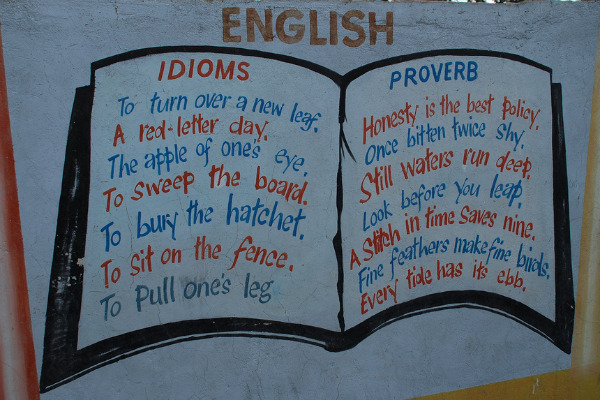 ENGLISH
IDIOMS
To turn over a new leaf.
A red-letter day.
The apple of one's eye.
To sweep the board.
To bury the hatchet.
To sit on the fence.
To pull one's leg
PROVERB
Honesty is the best policy.
Once bitten twice shy.
Still waters run deep.
Look before you leap.
A Stitch in time saves nine.
Fine feathers make fine birds.
Every tide has its ebb.